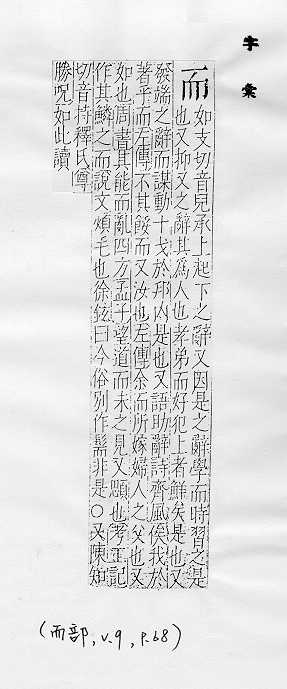 字彙
而
如支切音兒承上起下之辭又因是之辭學而時習之是
也又抑又之辭其為人也孝弟而好犯上者鮮矣是也又
發端之辭而謀動干戈於邦內是也又語助辭詩齊風俟我於
著乎而左傳不其餒而又汝也左傳余而所嫁婦人之父也又
如也周書其能而亂四方孟子望道而未之見又頤也考工記
作其鱗之而說文頰毛也徐鉉曰今俗別作髵非是○又陳知
切音持釋氏尊
勝呪如此讀
(而部, v.9, p.68)